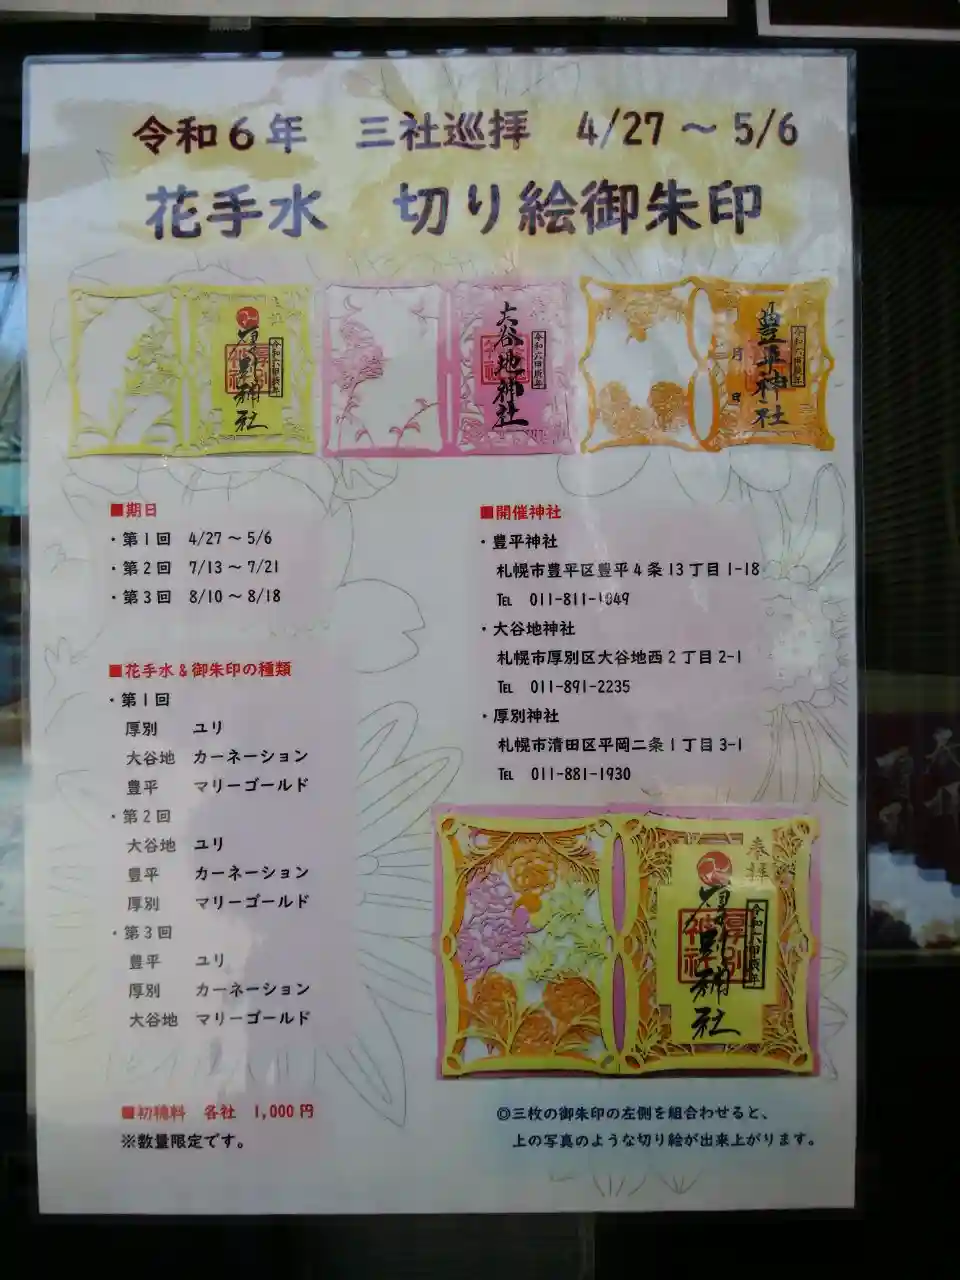 令和6年 三社巡拝 4/27～5/6
花手水 切り絵御朱印
厚別神社
令和六甲辰年
大谷地神社
令和六甲辰年
豊平神社
令和六甲辰年
月 日
■期日
・第1回 4/27～5/6
・第2回 7/13～7/21
・第3回 8/10～8/18
■花手水&御朱印の種類
・第1回
厚別 ユリ
大谷地 カーネーション
豊平 マリーゴールド
・第2回
大谷地 ユリ
豊平 カーネーション
厚別 マリーゴールド
・第3回
豊平 ユリ
厚別 カーネーション
大谷地 マリーゴールド
■初穂料 各社 1,000円
※数量限定です。
■開催神社
・豊平神社
札幌市豊平区豊平4条13丁目1-18
℡ 011-811-1049
・大谷地神社
札幌市厚別区大谷地西2丁目2-1
℡ 011-891-2235
・厚別神社
札幌市清田区平岡二条1丁目3-1
℡ 011-881-1930
奉拝
厚別神社
令和六甲辰年
◎三枚の御朱印の左側を組合わせると、
上の写真のような切り絵が出来上がります。